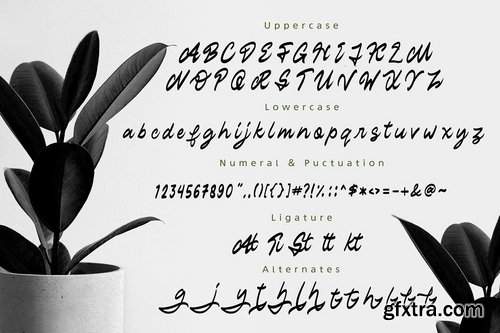 Uppercase
ABCDEFGHIJKLM
NOPQRSTUVWXYZ
Lowercase
abcdefghijklmnopqrstuvwxyz
Numeral & Puctuation
1234567890",.()[{}]#?!%::^$*<>=-+&@~
Ligature
At Ri St tt kt
Alternates
g j y t l h
gfxtra.com